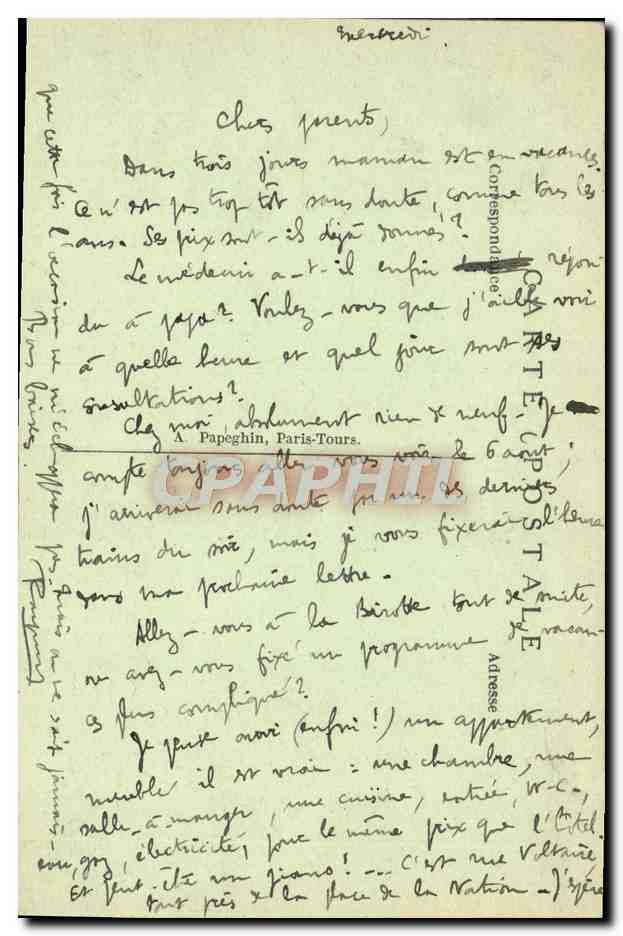 Mercredi
Chers parents,
Dans trois jours maman est en vacances.
Ce n'est pas trop tôt sans doute, comme tous les
ans. Ses prix sont-ils déjà donnés?
Le médecin a-t-il enfin répon-
du à papa? Voulez-vous que j'aille voir
à quelle heure et quel jour sont ses
consultations?
Chez moi, absolument rien de neuf. Je
compte toujours aller vous voir le 6 août;
j'arriverai sans doute par un des derniers
trains du soir, mais je vous fixerai l'heure
dans ma prochaine lettre.
Allez-vous à la Birotte tout de suite,
ou avez-vous fixé un programme de vacan-
ces plus compliqué?
Je pense avoir (enfin!) un appartement,
meublé il est vrai: une chambre, une
salle-à-manger, une cuisine, entrée, W-C.,
eau, gaz, électricité, pour le même prix que l'hôtel.
Et peut-être un piano! ... C'est rue Voltaire,
tout près de la place de la Nation - J'espère
que cette fois l'occasion ne m'échappera pas, mais on ne sait jamais-
Bons baisers.
CARTE POSTALE
Correspondance
Adresse
A. Papeghin, Paris-Tours.
CPAPHIL